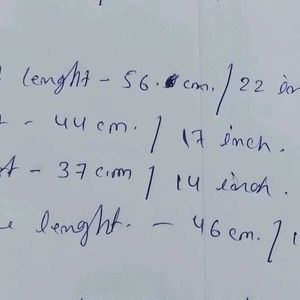 lenght - 56. cm. / 22 in
- 44 cm. / 17 inch.
- 37 cm / 14 inch.
lenght. - 46 cm. / 1